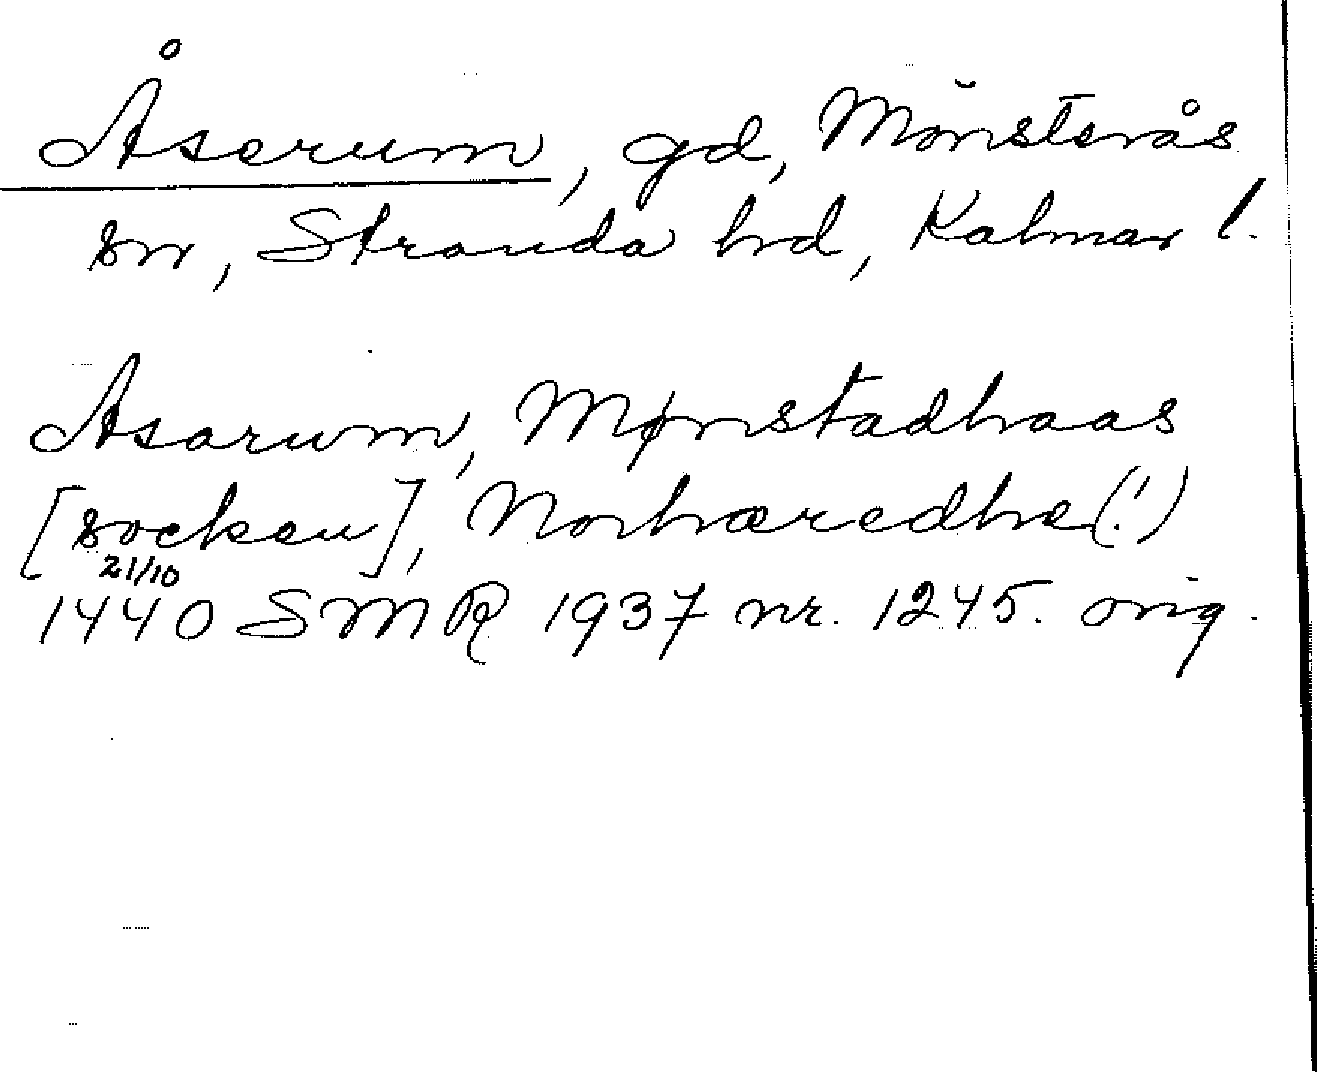 Åserum, gd, Mönsterås
sn, Stranda hd, Kalmar l.
Asarum, Mønstadhaas
[socken], Norhæredhe(!)
21/10
1440 SMR 1937 nr. 1245. orig.